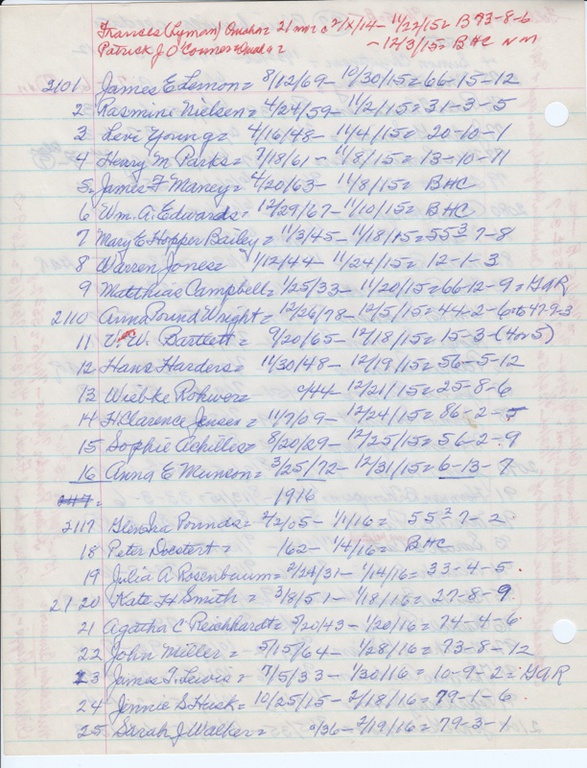 Frances (Lyman) Omaha = 21 mr c 2/x/14 - 11/22/15 = B 93-8-6
Patrick J. O'Connor = Omaha = - 12/3/15 = BHC N M
2101 James E Lemon = 8/12/69 - 10/30/15 = 66-15-12
2 Rasmine Nielsen = 4/24/59 - 11/2/15 = 31-3-5
3 Levi Young = 4/16/48 - 11/4/15 = 20-10-1
4 Henry M Parks = 7/18/61 - 11/8/15 = 13-10-11
5 James F Maney = 4/20/63 - 11/8/15 = BHC
6 Wm. A. Edwards = 12/29/67 - 11/10/15 = BHC
7 Mary E Hopper Bailey = 11/3/45 - 11/18/15 = 55 3 7-8
8 Warren Jones = 1/12/44 - 11/24/15 = 12-1-3
9 Matthias Campbell = 1/25/33 - 11/20/15 = 66-12-9 = GAR
2110 Anna Pound Wright = 12/26/78 - 12/5/15 = 44-2-6 to 47-9-3
11 W. Bartlett = 9/20/65 - 12/18/15 = 15-3-(4 or 5)
12 Hans Harders = 11/30/48 - 12/19/15 = 56-5-12
13 Wiebke Rohwer = c/44 - 12/21/15 = 25-8-6
14 H Clarence Jensen = 11/7/09 - 12/24/15 = 86-2-5
15 Sophie Achillis = 8/20/29 - 12/25/15 = 56-2-9
16 Anna E Munson = 3/25/72 - 12/31/15 = 6-13-7
1916
2117 Glen Ira Pounds = 2/2/05 - 1/1/16 = 55 2 7-2
18 Peter Doestert = /62 - 1/4/16 = BHC
19 Julia A Rosenbaum = 2/24/31 - 1/14/16 = 33-4-5
2120 Kate H Smith = 3/8/51 - 1/18/16 = 27-8-9
21 Agatha C Reichhardt = 5/20/43 - 1/20/16 = 74-4-6
22 John Miller = 5/15/64 - 1/28/16 = 73-8-12
23 James T. Lewis = 7/5/33 - 1/30/16 = 10-9-2 = GAR
24 Jennie S Husk = 10/25/15 - 2/18/16 = 79-1-6
25 Sarah J Walker = c/36 - 2/19/16 = 79-3-1